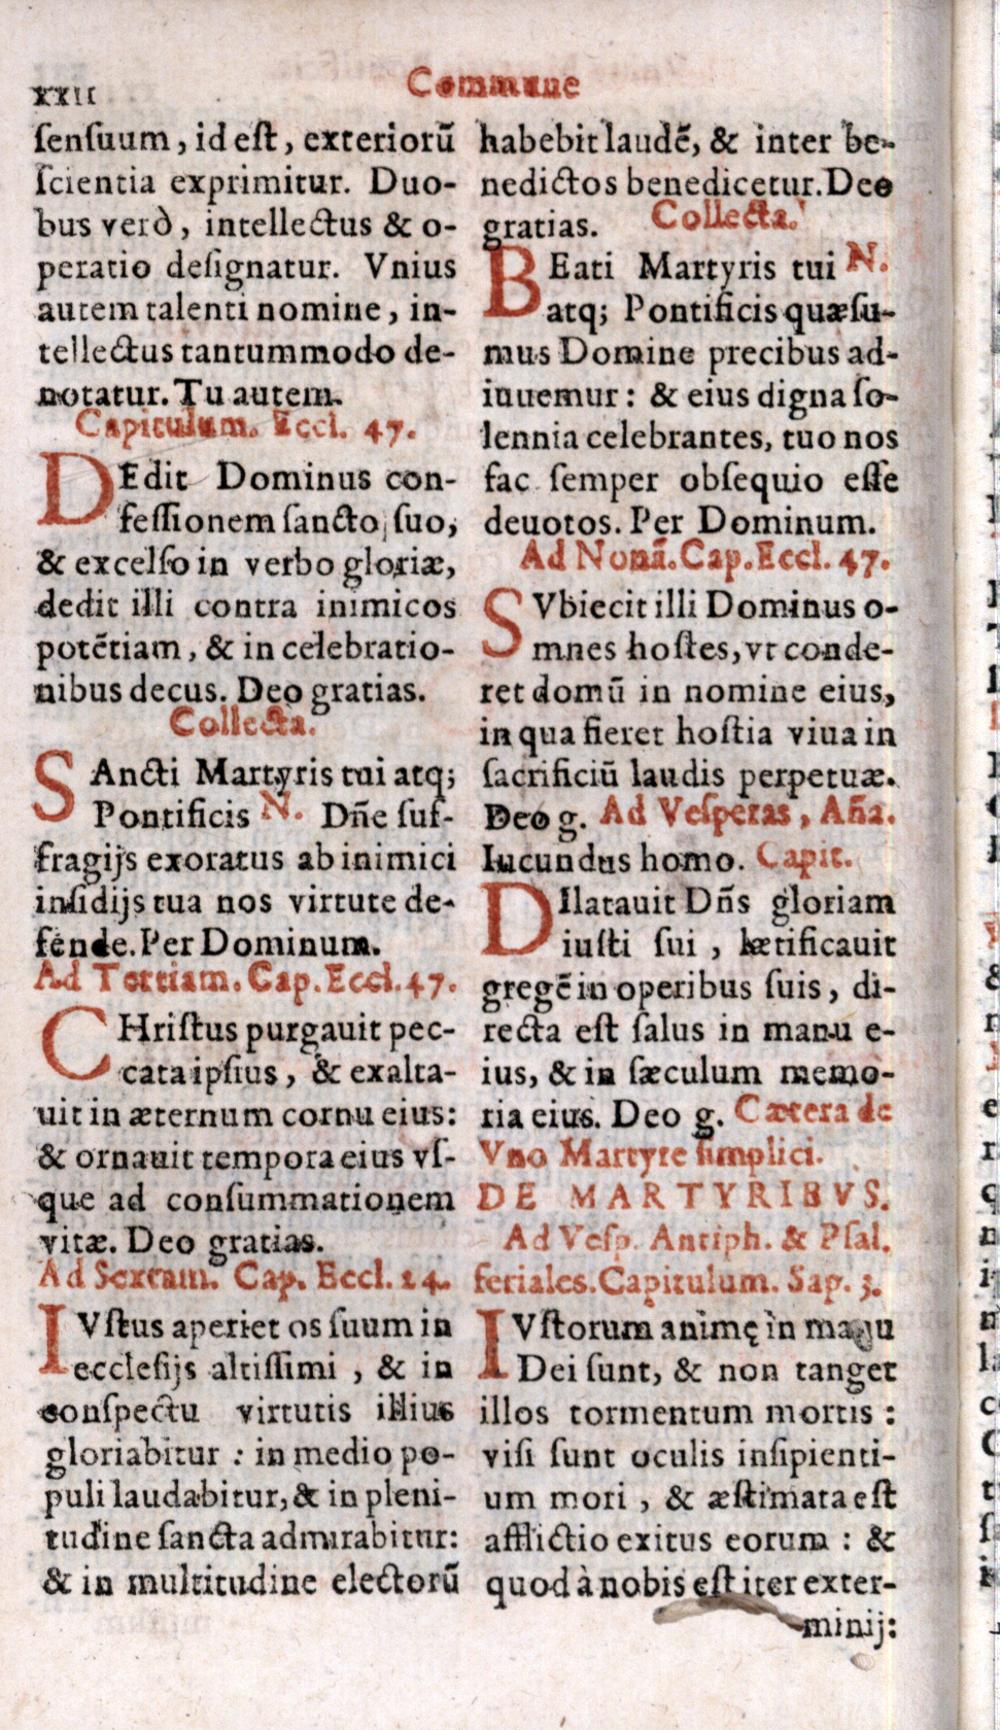 xxii
Commune
ſenſuum, id eſt, exteriorũ
ſcientia exprimitur. Duo-
bus verò, intellectus & o-
peratio deſignatur. Vnius
autem talenti nomine, in-
tellectus tantummodo de-
notatur. Tu autem.
Capitulum. Eccl. 47.
DEdit Dominus con-
feſſionem ſancto ſuo,
& excelſo in verbo gloriæ,
dedit illi contra inimicos
potẽtiam, & in celebratio-
nibus decus. Deo gratias.
Collecta.
SAncti Martyris tui atq;
Pontificis N. Dñe ſuf-
fragijs exoratus ab inimici
inſidijs tua nos virtute de-
fende. Per Dominum.
Ad Tertiam. Cap. Eccl. 47.
CHriſtus purgauit pec-
cata ipſius, & exalta-
uit in æternum cornu eius:
& ornauit tempora eius vſ-
que ad conſummationem
vitæ. Deo gratias.
Ad Sextam. Cap. Eccl. 24.
IVſtus aperiet os ſuum in
eccleſijs altiſſimi, & in
conſpectu virtutis illius
gloriabitur: in medio po-
puli laudabitur, & in pleni-
tudine ſancta admirabitur:
& in multitudine electorũ
habebit laudẽ, & inter be-
nedictos benedicetur. Deo
gratias. Collecta.
BEati Martyris tui N.
atq; Pontificis quæſu-
mus Domine precibus ad-
iuuemur: & eius digna ſo-
lennia celebrantes, tuo nos
fac ſemper obſequio eſſe
deuotos. Per Dominum.
Ad Nonã. Cap. Eccl. 47.
SVbiecit illi Dominus o-
mnes hoſtes, vt conde-
ret domũ in nomine eius,
in qua fieret hoſtia viua in
ſacrificiũ laudis perpetuæ.
Deo g. Ad Veſperas, Aña.
Iucundus homo. Capit.
DIlatauit Dñs gloriam
iuſti ſui, lætificauit
gregẽ in operibus ſuis, di-
recta eſt ſalus in manu e-
ius, & in ſæculum memo-
ria eius. Deo g. Cætera de
Vno Martyre ſimplici.
DE MARTYRIBVS.
Ad Veſp. Antiph. & Pſal.
feriales. Capitulum. Sap. 3.
IVſtorum animę in manu
Dei ſunt, & non tanget
illos tormentum mortis:
viſi ſunt oculis inſipienti-
um mori, & æſtimata eſt
afflictio exitus eorum: &
quod à nobis eſt iter exter-
minij: